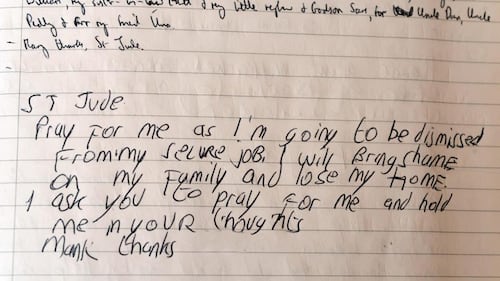 my little nephew & Godson Sam, for Uncle Dan, Uncle
Paddy & for my friend Una.
- Many thanks, St Jude.
-
ST Jude
Pray For me as I'm going to be dismissed
From my secure job. I will Bring shame
on my Family and lose my Home.
I ask you to pray for me and hold
me in your thoughts
Mank thanks